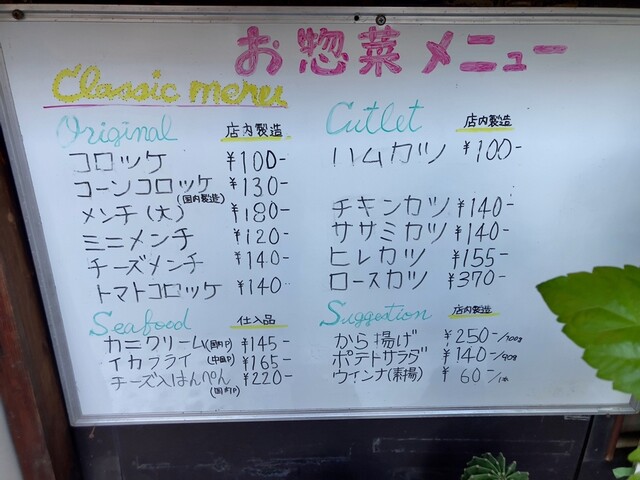 お惣菜メニュー
Classic menu
Original 店内製造
コロッケ ¥100-
コーンコロッケ ¥130-
(国内製造)
メンチ(大) ¥180-
ミニメンチ ¥120-
チーズメンチ ¥140-
トマトコロッケ ¥140
Seafood 仕入品
カニクリーム(国内P) ¥145-
イカフライ(中国P) ¥165-
チーズ入はんぺん ¥220-
(国内P)
Cutlet 店内製造
ハムカツ ¥100-
チキンカツ ¥140-
ササミカツ ¥140-
ヒレカツ ¥155-
ロースカツ ¥370-
Suggestion 店内製造
から揚げ ¥250-/100g
ポテトサラダ ¥140-/90g
ウインナ(素揚) ¥60-/1本